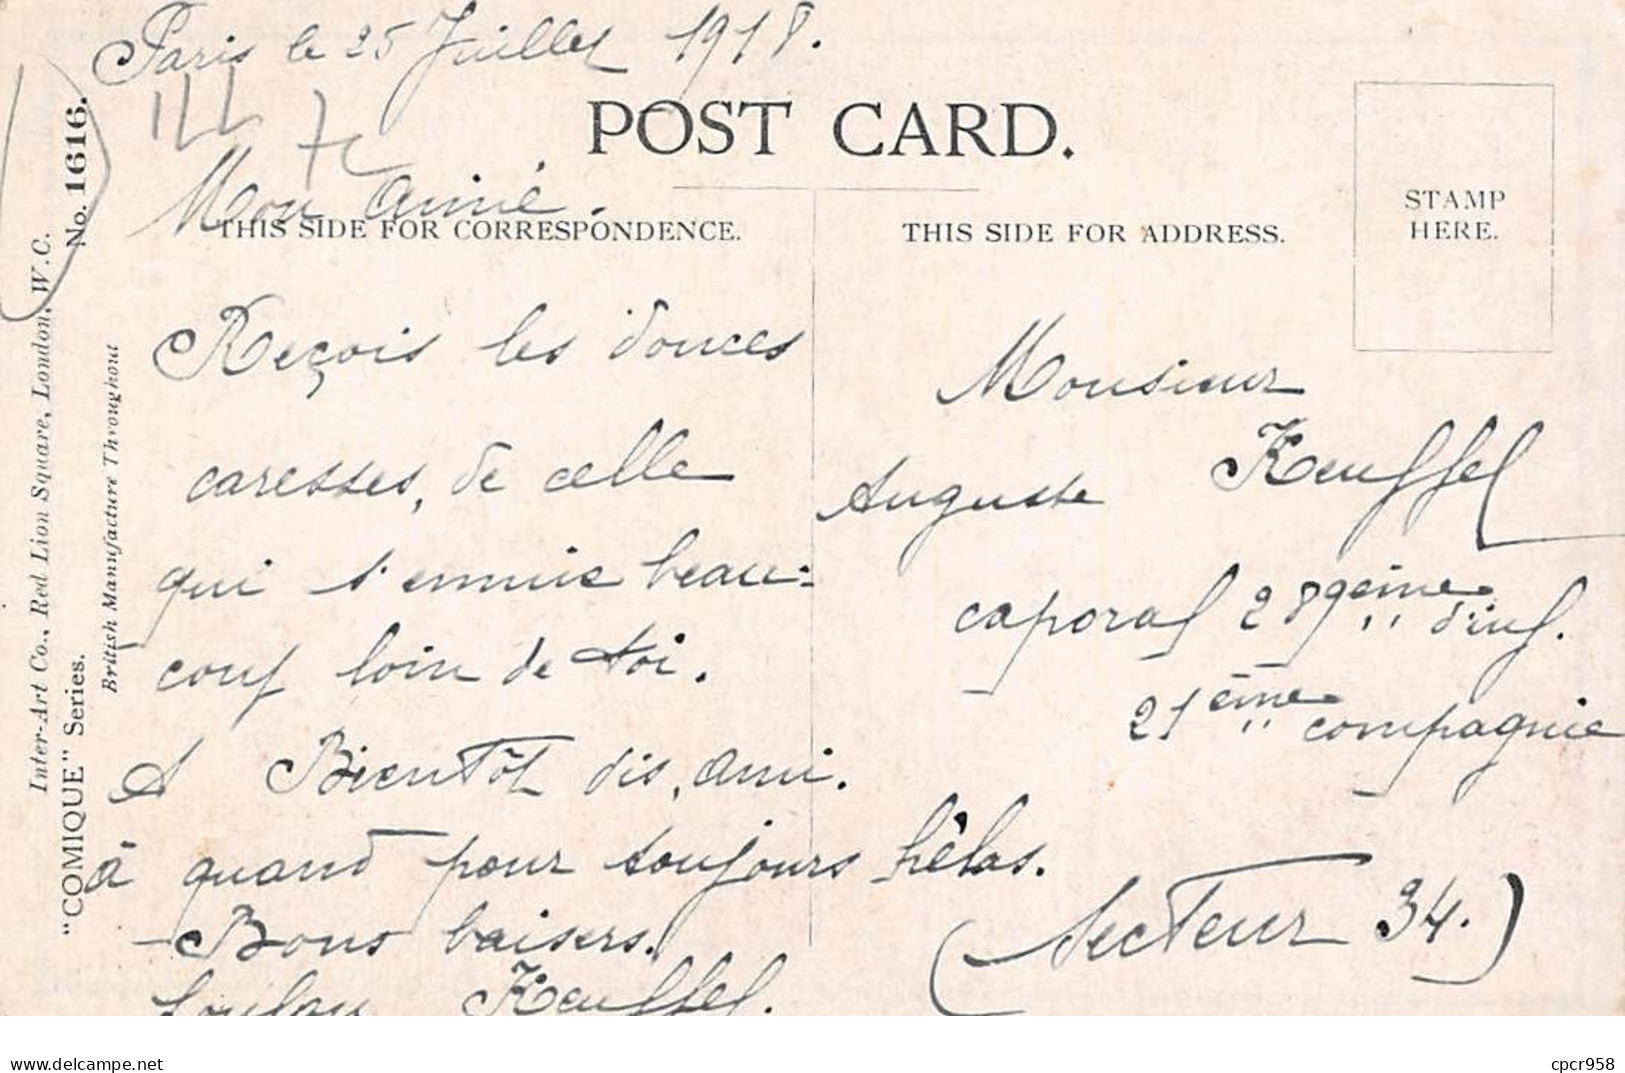 Paris le 25 Juillet 1918.
POST CARD.
Mon aimé.
THIS SIDE FOR CORRESPONDENCE.
Reçois les douces
caresses, de celle
qui s'ennuie beau-
coup loin de toi.
A Bientôt dis, ami.
à quand pour toujours hêlas.
Bons baisers.
Loulou Kœuffel.
THIS SIDE FOR ADDRESS.
STAMP
HERE.
Monsieur
Auguste Kœuffel
caporal 289ème d'inf.
21ème compagnie
(Secteur 34.)
Inter-Art Co., Red Lion Square, London, W.C.
"COMIQUE" Series. No. 1616.
British Manufacture Throughout
www.delcampe.net
cpcr958